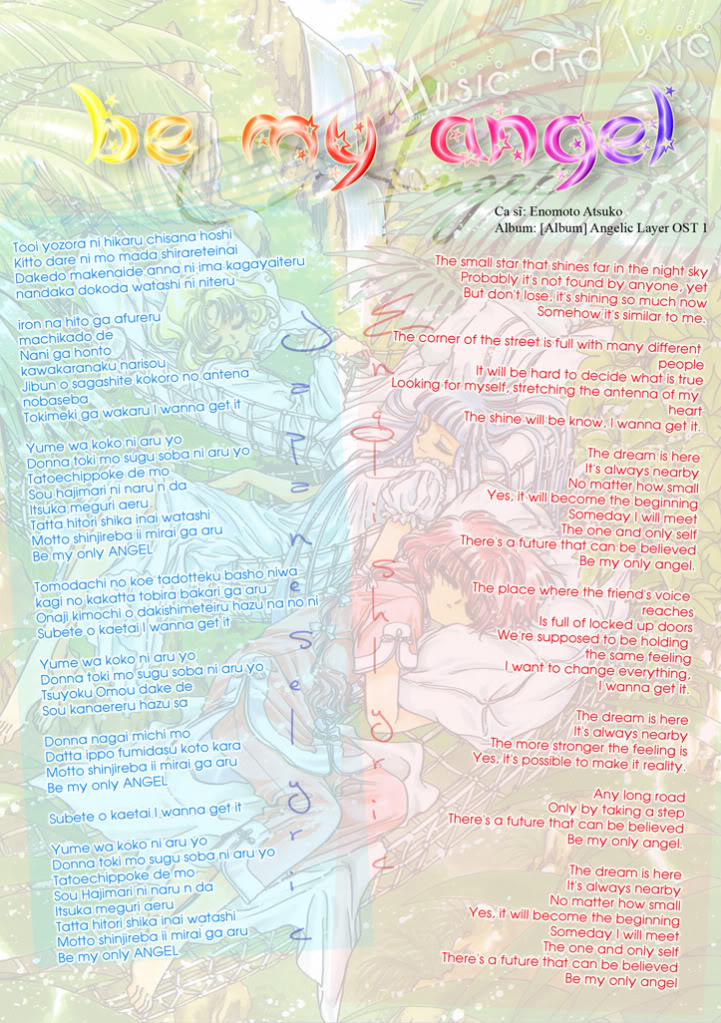 Music and lyric
be my angel
Ca sĩ: Enomoto Atsuko
Album: [Album] Angelic Layer OST 1
Tooi yozora ni hikaru chisana hoshi
Kitto dare ni mo mada shirareteinai
Dakedo makenaide anna ni ima kagayaiteru
nandaka dokoda watashi ni niteru
iron na hito ga afureru
machikado de
Nani ga honto
kawakaranaku narisou
Jibun o sagashite kokoro no antena
nobaseba
Tokimeki ga wakaru I wanna get it
Yume wa koko ni aru yo
Donna toki mo sugu soba ni aru yo
Tatoechippoke de mo
Sou hajimari ni naru n da
Itsuka meguri aeru
Tatta hitori shika inai watashi
Motto shinjireba ii mirai ga aru
Be my only ANGEL
Tomodachi no koe tadotteku basho niwa
kagi no kakatta tobira bakari ga aru
Onaji kimochi o dakishimeteiru hazu na no ni
Subete o kaetai I wanna get it
Yume wa koko ni aru yo
Donna toki mo sugu soba ni aru yo
Tsuyoku Omou dake de
Sou kanaereru hazu sa
Donna nagai michi mo
Datta ippo fumidasu koto kara
Motto shinjireba ii mirai ga aru
Be my only ANGEL
Subete o kaetai I wanna get it
Yume wa koko ni aru yo
Donna toki mo sugu soba ni aru yo
Tatoechippoke de mo
Sou Hajimari ni naru n da
Itsuka meguri aeru
Tatta hitori shika inai watashi
Motto shinjireba ii mirai ga aru
Be my only ANGEL
Japanese lyric
English lyric
The small star that shines far in the night sky
Probably it's not found by anyone, yet
But don't lose, it's shining so much now
Somehow it's similar to me.
The corner of the street is full with many different
people
It will be hard to decide what is true
Looking for myself, stretching the antenna of my
heart
The shine will be know, I wanna get it.
The dream is here
It's always nearby
No matter how small
Yes, it will become the beginning
Someday I will meet
The one and only self
There's a future that can be believed
Be my only angel.
The place where the friend's voice
reaches
Is full of locked up doors
We're supposed to be holding
the same feeling
I want to change everything,
I wanna get it.
The dream is here
It's always nearby
The more stronger the feeling is
Yes, it's possible to make it reality.
Any long road
Only by taking a step
There's a future that can be believed
Be my only angel.
The dream is here
It's always nearby
No matter how small
Yes, it will become the beginning
Someday I will meet
The one and only self
There's a future that can be believed
Be my only angel